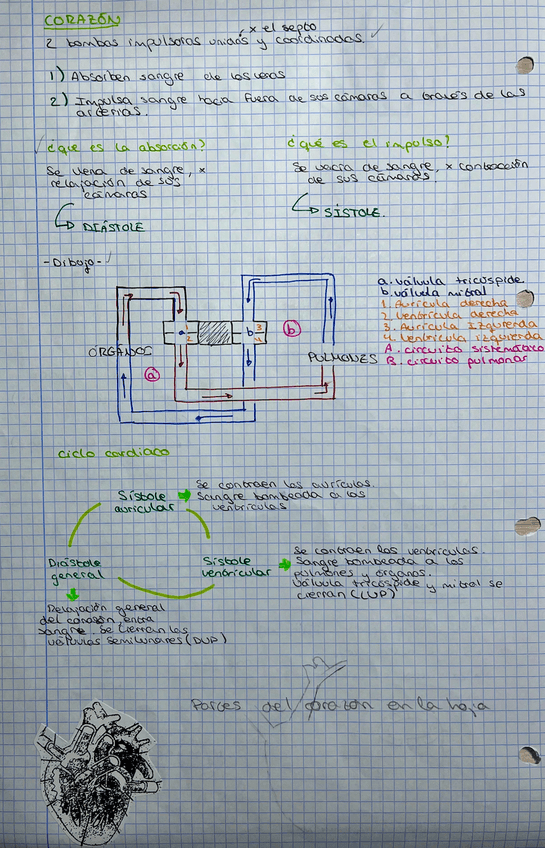 CORAZÓN
x el septo
2 bombas impulsoras unidas y coordinadas.
1) Absorben sangre de las venas
2) Impulsa sangre hacia fuera de sus cámaras a través de las
arterias.
¿que es la absorción?
Se llena de sangre, x
relajación de sus
cámaras
DIÁSTOLE
¿qué es el impulso?
Se vacía de sangre, x contracción
de sus cámaras.
SÍSTOLE.
-Dibujo-
a. válvula tricúspide
b. válvula mitral
1. Aurícula derecha
2. Ventrícula derecha
3. Aurícula Izquierda
4. Ventrícula izquierda
A. circuito sistemático
B. circuito pulmonar
a
1
2
b
3
4
b
ÓRGANOS
PULMONES
a
ciclo cardiaco
Sístole
auricular
Se contraen las aurículas.
Sangre bombeada a los
ventrículos
Sístole
ventricular
Se contraen los ventrículos.
Sangre bombeada a los
pulmones y órganos.
Válvula tricúspide y mitral se
cierran (LUP)
Diástole
general
Relajación general
del corazón, entra
sangre. Se cierran las
válvulas semilunares (DUP)
Partes del corazón en la hoja